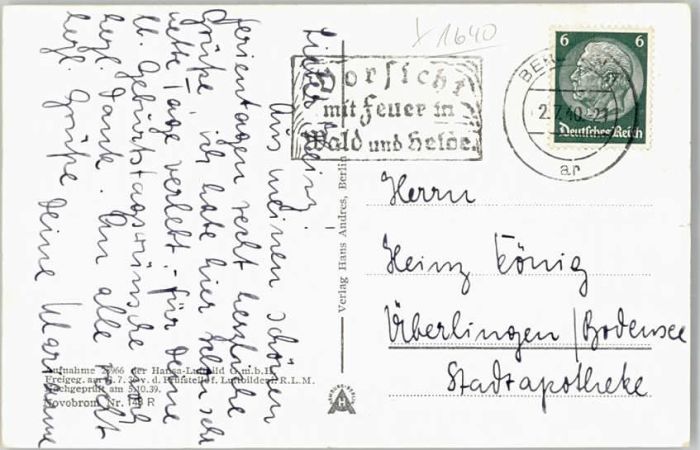 X 1640
Lieber Heinz!
Aus meinen schönen
Ferientagen recht herzliche
Grüße, ich habe hier sehr
nette Tage verlebt. Für Deine
lb. Geburtstagswünsche noch
herzl. Dank. An alle recht
herzl. Grüße Deine
Vorsicht
mit Feuer in
Wald und Heide.
BERLIN
2.7.40.-21
ar
6 6
Deutsches Reich
Herrn
Heinz König
Überlingen / Bodensee
Stadtapotheke
Verlag Hans Andres, Berlin
Aufnahme 25966 der Hansa-Luftbild G.m.b.H.
Freigeg. am 7.3 v. d. Prüfstelle f. Luftbilder R.L.M.
Nachgeprüft am 5.10.39.
Novobrom Nr. 148 R